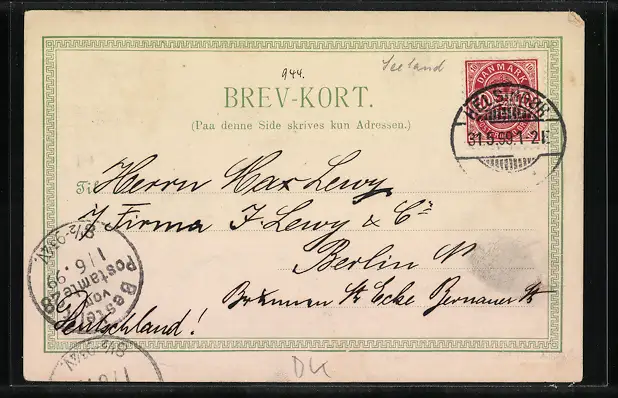 944.
Seeland
BREV-KORT.
(Paa denne Side skrives kun Adressen.)
DANMARK
HELSINGØR
31.5.99.1-2E
Til Herrn Max Lewy
J Firma J. Lewy & Co
Berlin N
Brunnen Str Ecke Bernauer Str
Deutschland!
Bestellt
vom
Postamte 28
1/6.99
8½-9¾V.
8½-9¾V.
DK